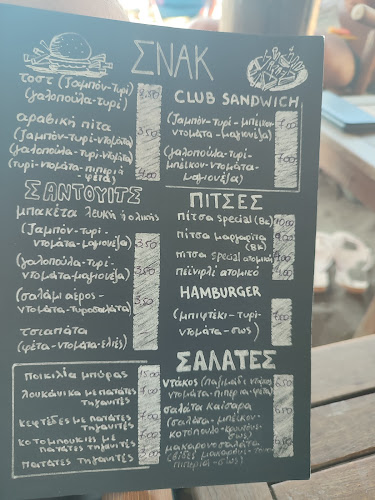 ΣΝΑΚ
τοστ (Ζαμπόν-τυρί)
(γαλοπούλα-τυρί)
αραβική πίτα
(Ζαμπόν-τυρί-ντομάτα)
(γαλοπούλα-τυρί-ντομάτα)
(τυρί-ντομάτα-πιπεριά
-φέτα)
3,50
4,00
ΣΑΝΤΟΥΙΤΣ
μπακέτα λευκή ή ολικής
(Ζαμπόν-τυρί-
ντομάτα-μαγιονέζα)
3,50
(γαλοπούλα-τυρί-
ντομάτα-μαγιονέζα)
3,50
(σαλάμι αέρος-
ντομάτα-τυροσαλάτα)
3,50
τσιαπάτα
(φέτα-ντομάτα-ελιές)
ποικιλία μπύρας 15,00
λουκάνικα με πατάτες
τηγανιτές 7,00
κεφτέδες με πατάτες
τηγανιτές
κοτομπουκιές με
πατάτες τηγανιτές
πατάτες τηγανιτές
CLUB SANDWICH
(Ζαμπόν-τυρί-μπέικον-
ντομάτα-μαγιονέζα) 7,00
(γαλοπούλα-τυρί-
μπέικον-ντομάτα-
μαγιονέζα) 7,00
ΠΙΤΣΕΣ
πίτσα special (8κ) 10,00
πίτσα μαργαρίτα
(8κ) 9,00
πίτσα special ατομική
πεϊνιρλί ατομικό
HAMBURGER
(μπιφτέκι-τυρί-
ντομάτα-σως) 7,00
ΣΑΛΑΤΕΣ
ντάκος (παξιμάδι
ντομάτα-πιπεριά-φέτα) 6,50
σαλάτα καίσαρα
(σαλάτα-μπέικον-
κοτόπουλο-κρουτόν-
σως) 6,50
μακαρονοσαλάτα
(βίδες μακαρόνι-
πιπεριά-σως)